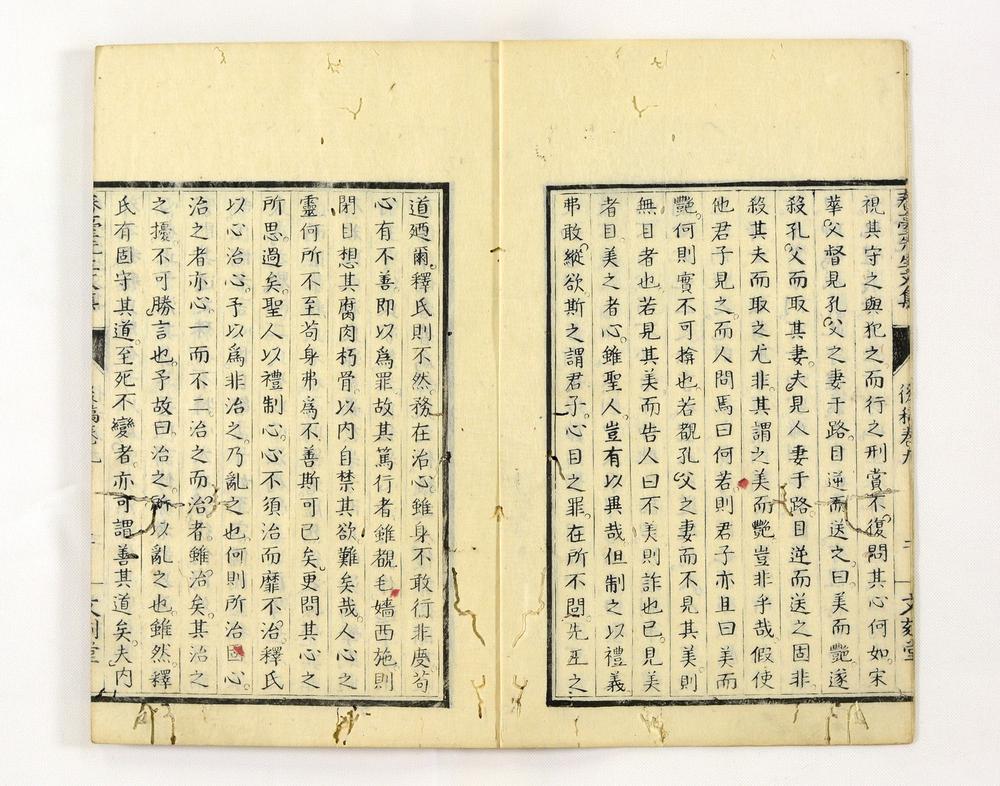 視其守之與犯之而行之刑賞不復問其心何如宋
華父督見孔父之妻于路目逆而送之曰美而艷遂
殺孔父而取其妻夫見人妻于路目逆而送之固非
殺其夫而取之尤非其謂之美而艷豈非乎哉假使
他君子見之而人問焉曰何若則君子亦且曰美而
艷何則實不可揜也若覩孔父之妻而不見其美則
無目者也若見其美而告人曰不美則詐也已見美
者目美之者心雖聖人豈有以異哉但制之以禮義
弗敢縱欲斯之謂君子心目之罪在所不問先王之
道廼爾釋氏則不然務在治心雖身不敢行非度苟
心有不善即以爲罪故其篤行者雖覩毛嬙西施則
閉目想其腐肉朽骨以内自禁其欲難矣哉人心之
靈何所不至苟身弗爲不善斯可已矣更問其心之
所思過矣聖人以禮制心心不須治而靡不治釋氏
以心治心予以爲非治之乃亂之也何則所治固心
治之者亦心一而不二治之而治者雖治矣其治之
之擾不可勝言也予故曰治之所以亂之也雖然釋
氏有固守其道至死不變者亦可謂善其道矣夫内